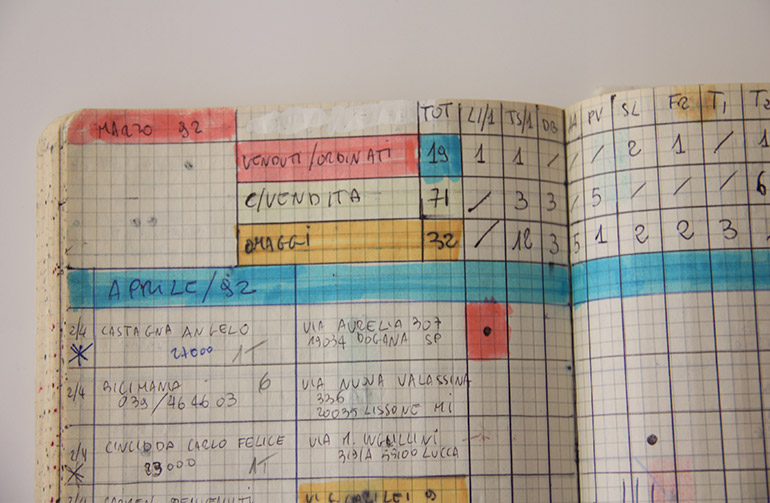 TOT LI/1 TS/1 DB PV SL F2 T1 T2
MARZO 92
VENDUTI/ORDINATI 19 1 1 / / / 2 1 / 1
C/VENDITA 71 / 3 3 / 5 / / / 6
OMAGGI 32 / 12 3 5 1 2 2 3
APRILE/92
2/4 CASTAGNA ANGELO VIA AURELIA 307
27000 1T 19034 DOGANA SP
2/4 BICIMANIA 6 VIA NUOVA VALASSINA
039/46 46 03 336
20035 LISSONE MI
2/4 CARLO FELICE VIA M.
23000 1T 55100 LUCCA